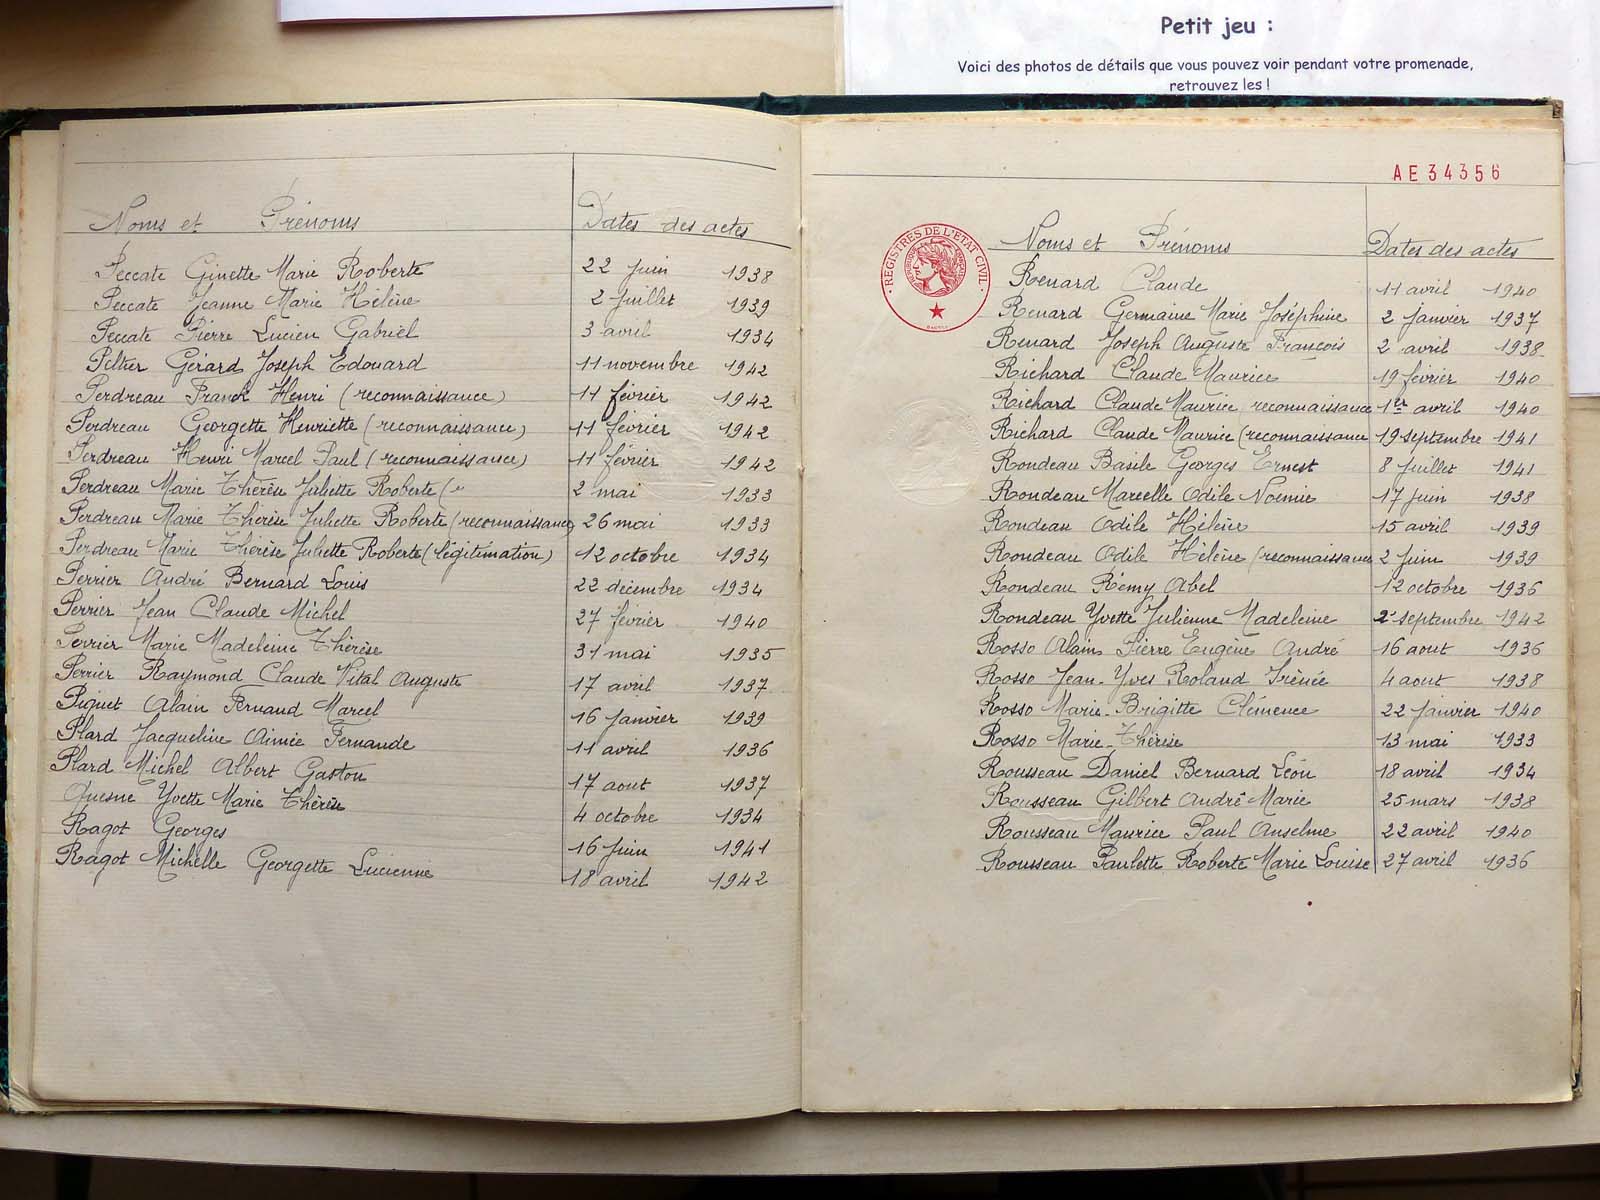 Petit jeu :
Voici des photos de détails que vous pouvez voir pendant votre promenade,
retrouvez les !
Noms et Prénoms Dates des actes
Peccate Ginette Marie Roberte 22 juin 1938
Peccate Jeanne Marie Hélène 2 juillet 1939
Peccate Pierre Lucien Gabriel 3 avril 1934
Peltier Gérard Joseph Edouard 11 novembre 1942
Perdreau Franck Henri (reconnaissance) 11 février 1942
Perdreau Georgette Henriette (reconnaissance) 11 février 1942
Perdreau Henri Marcel Paul (reconnaissance) 11 février 1942
Perdreau Marie Thérèse Juliette Roberte 2 mai 1933
Perdreau Marie Thérèse Juliette Roberte (reconnaissance) 26 mai 1933
Perdreau Marie Thérèse Juliette Roberte (légitimation) 12 octobre 1934
Perrier André Bernard Louis 22 décembre 1934
Perrier Jean Claude Michel 27 février 1940
Perrier Marie Madeleine Thérèse 31 mai 1935
Perrier Raymond Claude Vital Auguste 17 avril 1937
Piquet Alain Fernand Marcel 16 janvier 1939
Plard Jacqueline Aimée Fernande 11 avril 1936
Plard Michel Albert Gaston 17 aout 1937
Quesne Yvette Marie Thérèse 4 octobre 1934
Ragot Georges 16 juin 1941
Ragot Michelle Georgette Lucienne 18 avril 1942
AE34356
REGISTRES DE L'ETAT CIVIL
Noms et Prénoms Dates des actes
Renard Claude 11 avril 1940
Renard Germaine Marie Joséphine 2 janvier 1937
Renard Joseph Auguste François 2 avril 1938
Richard Claude Maurice 19 février 1940
Richard Claude Maurice reconnaissance 1er avril 1940
Richard Claude Maurice (reconnaissance 19 septembre 1941
Rondeau Basile Georges Ernest 8 juillet 1941
Rondeau Marcelle Odile Noémie 17 juin 1938
Rondeau Odile Hélène 15 avril 1939
Rondeau Odile Hélène (reconnaissance 2 juin 1939
Rondeau Rémy Abel 12 octobre 1936
Rondeau Yvette Julienne Madeleine 2 septembre 1942
Rosso Alain Pierre Eugène André 16 aout 1936
Rosso Jean-Yves Roland Irénée 4 aout 1938
Rosso Marie-Brigitte Clémence 22 janvier 1940
Rosso Marie-Thérèse 13 mai 1933
Rousseau Daniel Bernard Léon 18 avril 1934
Rousseau Gilbert André Marie 25 mars 1938
Rousseau Maurice Paul Anselme 22 avril 1940
Rousseau Paulette Roberte Marie Louise 27 avril 1936